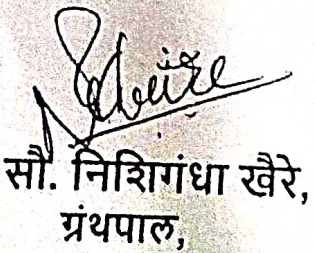 सौ. निशिगंधा खैरे,
ग्रंथपाल,